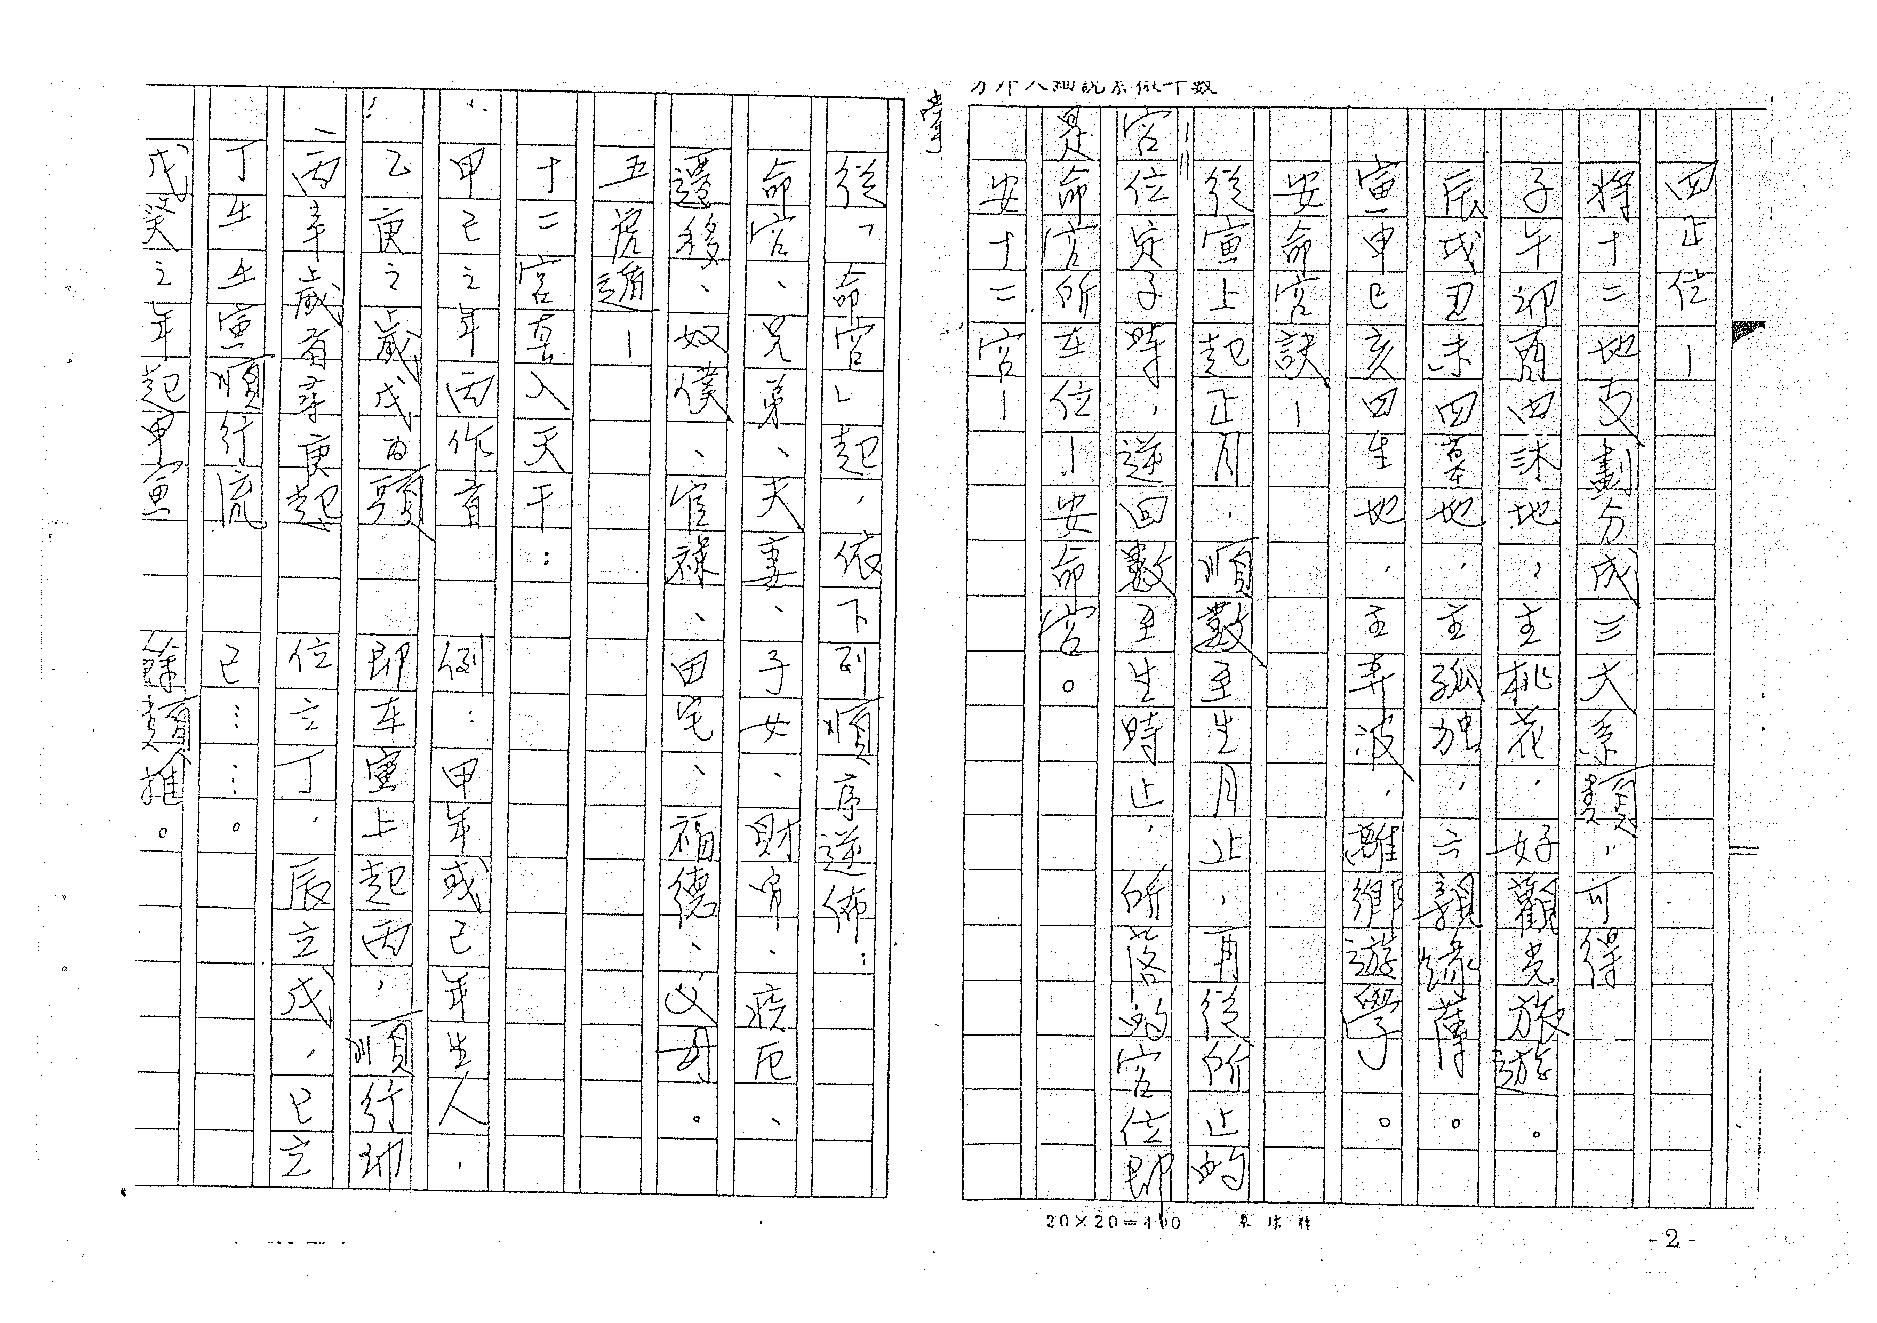 方外人細說紫微斗數
四正位—
將十二地支劃分成三大系類，可得
子午卯酉四沐地，主桃花，好觀光旅遊。
辰戌丑未四墓地，主孤独，六親緣薄。
寅申巳亥四生地，主奔波，離鄉遊學。
安命宮訣—
從寅上起正月，順數至生月止，再從所止的
宮位定子時，逆回數至生時止，所落的宮位即
是命宮所在位，安命宮。
安十二宮—
從「命宮」起，依下列順序逆佈：
命宮、兄弟、夫妻、子女、財帛、疾厄、
遷移、奴僕、官祿、田宅、福德、父母。
五虎遁—
十二宮真入天干：
甲己之年丙作首 例：甲年或己年生人，
乙庚之歲戊為頭 即在寅上起丙，順行卯
丙辛歲首尋庚起 位立丁，辰立戊，巳立
丁壬壬寅順行流 己……。
戊癸之年起甲寅 餘類推。
20×20=400
-2-